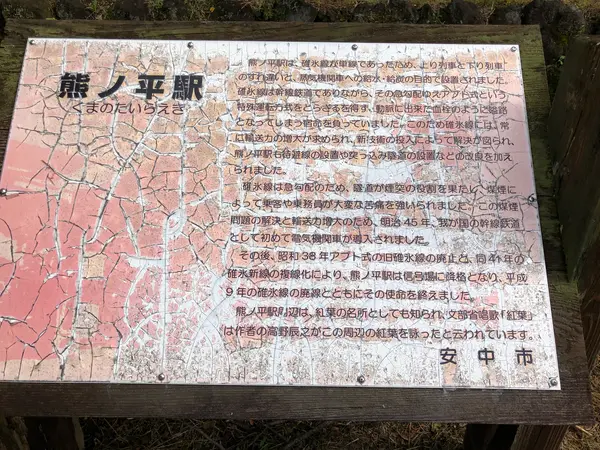 熊ノ平駅
くまのたいらえき
熊ノ平駅は、碓氷線が単線であったため、上り列車と下り列車
のすれ違いと、蒸気機関車への給水・給炭の目的で設置されました。
碓氷線は幹線鉄道でありながら、その急勾配ゆえアプト式という
特殊運転方式をとらざるを得ず、動脈に出来た血栓のように隘路
となってしまう宿命を負っていました。このため碓氷線には、常
に輸送力の増大が求められ、新技術の投入によって解決が図られ、
熊ノ平駅も待避線の設置や突っ込み隧道の設置などの改良を加え
られました。
碓氷線は急勾配のため、隧道が煙突の役割を果たし、煤煙に
よって乗客や乗務員が大変な苦痛を強いられました。この煤煙
問題の解決と輸送力増大のため、明治45年、我が国の幹線鉄道
として初めて電気機関車が導入されました。
その後、昭和38年アプト式の旧碓氷線の廃止と、同41年の
碓氷新線の複線化により、熊ノ平駅は信号場に降格となり、平成
9年の碓氷線の廃線とともにその使命を終えました。
熊ノ平駅周辺は、紅葉の名所としても知られ、文部省唱歌「紅葉」
は作者の高野辰之がこの周辺の紅葉を詠ったと云われています。
安中市